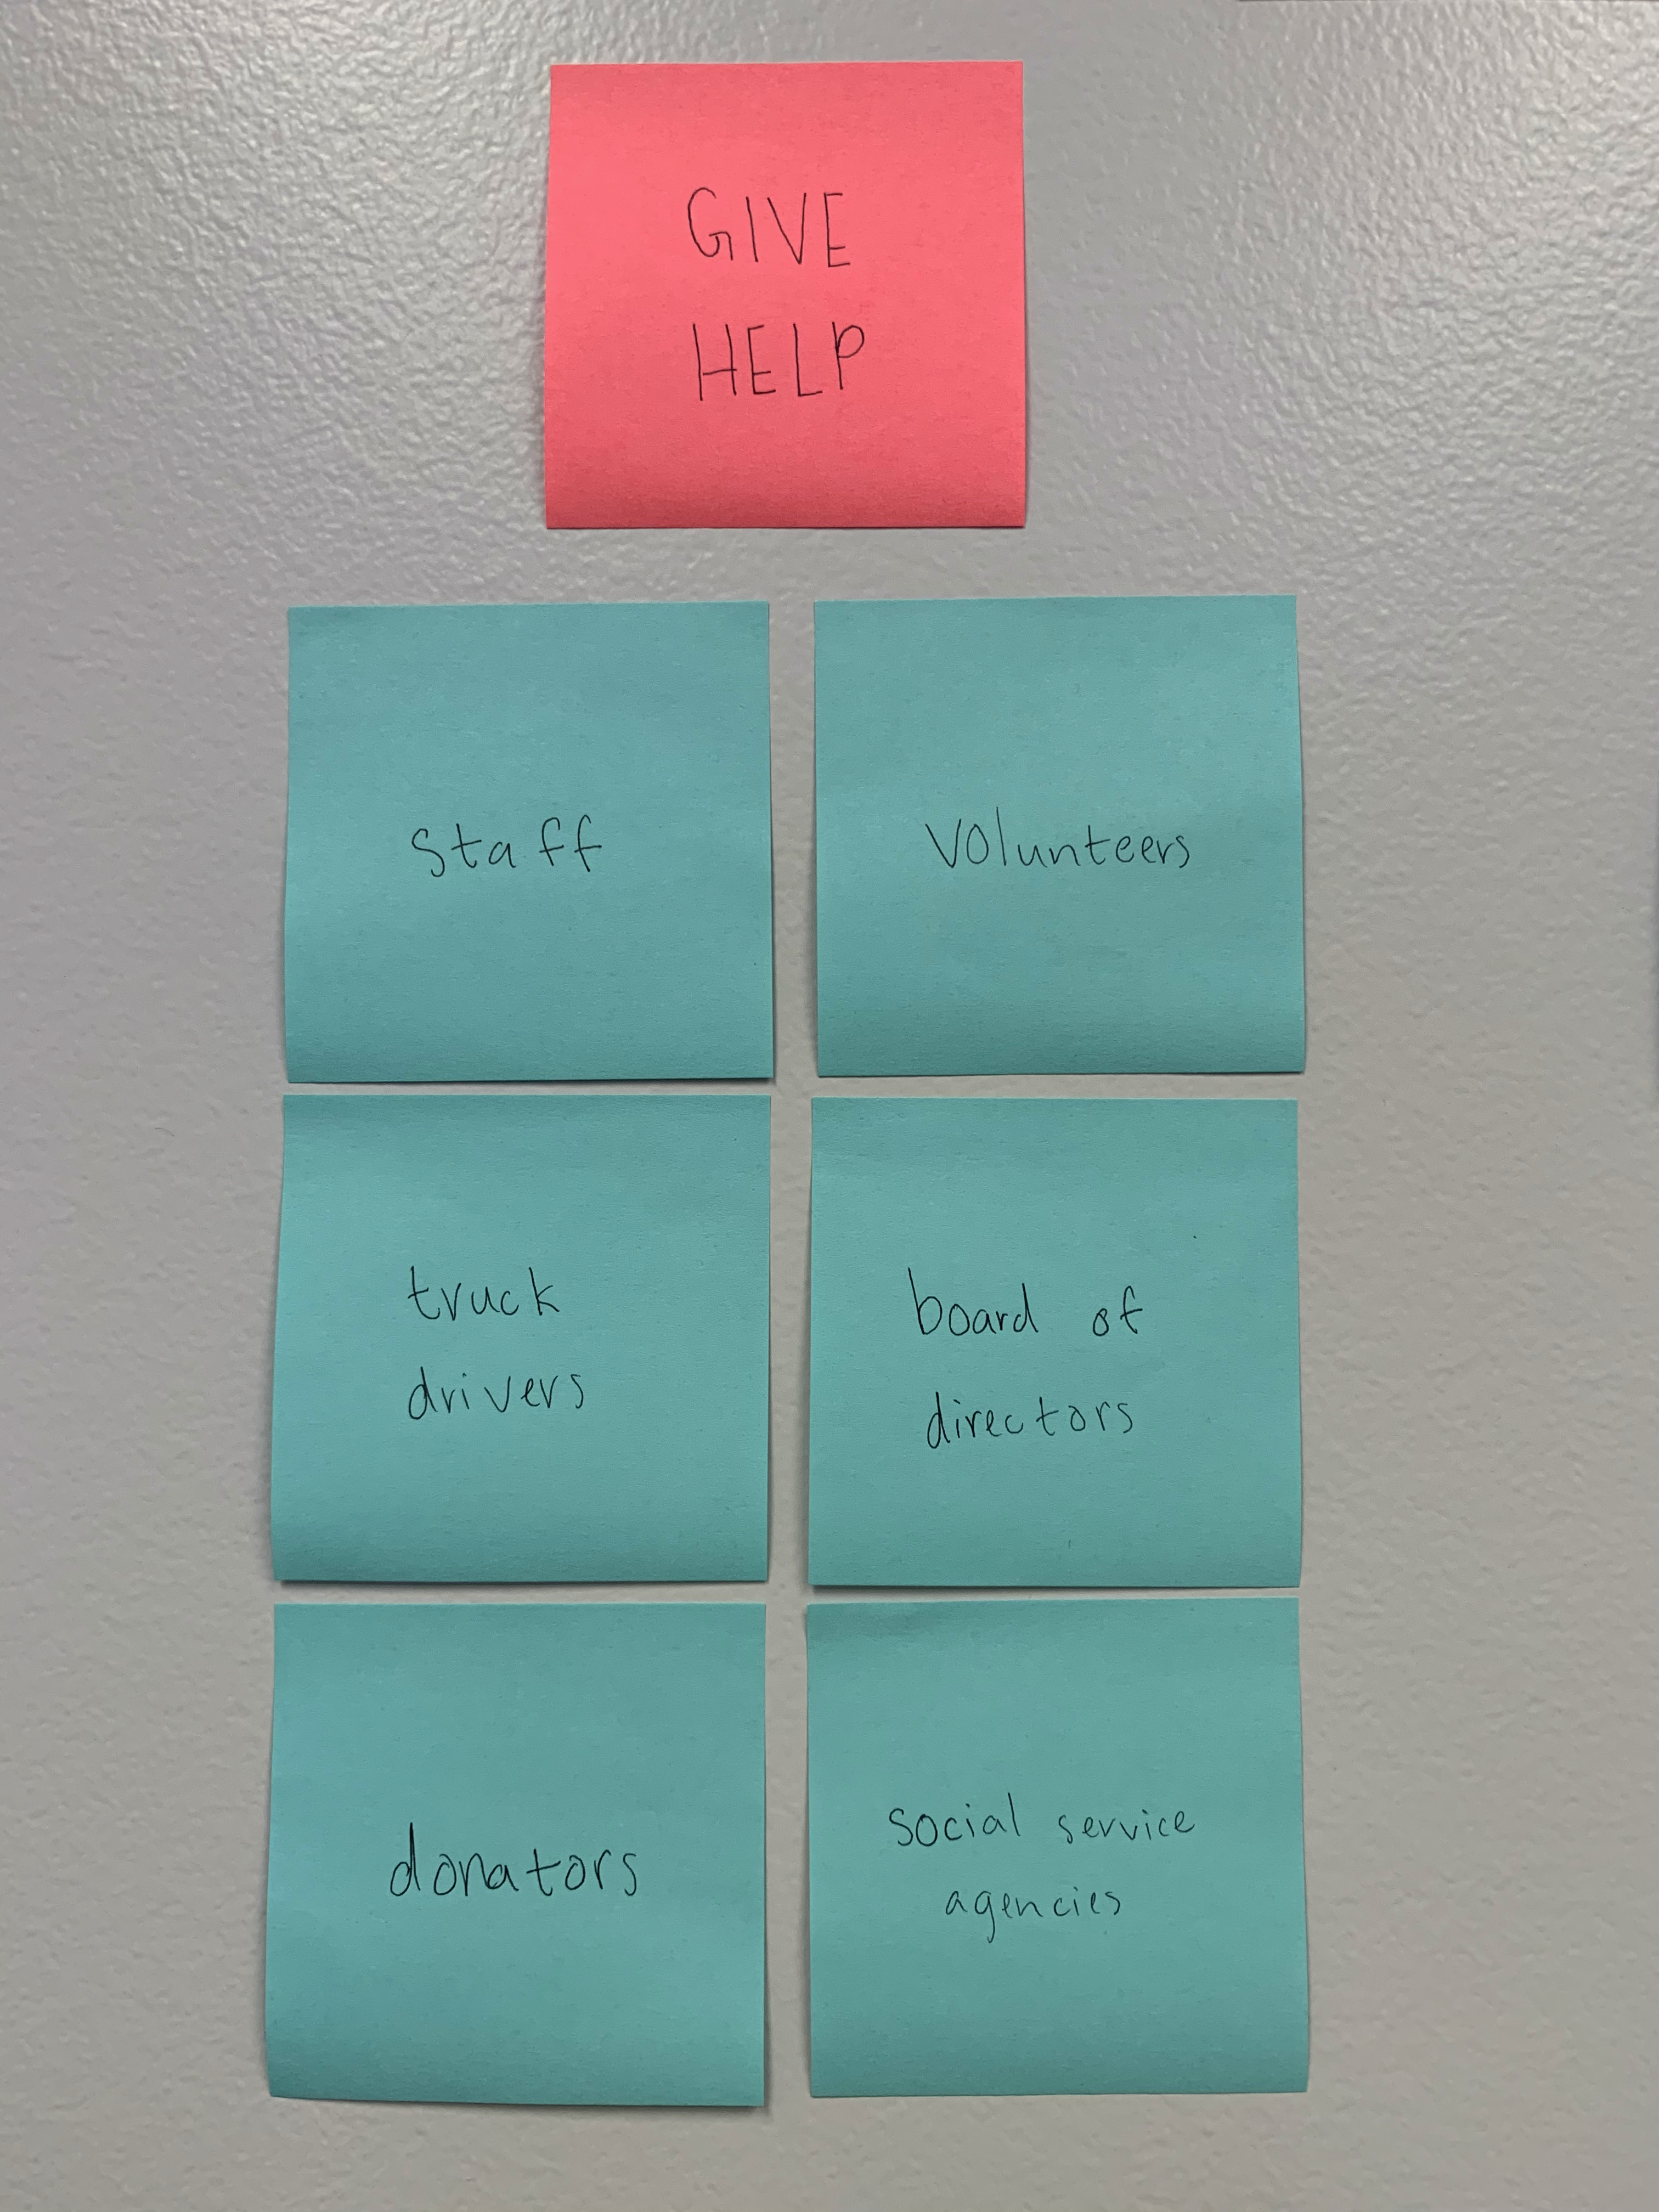 GIVE
HELP
staff
volunteers
truck
drivers
board of
directors
donators
social service
agencies